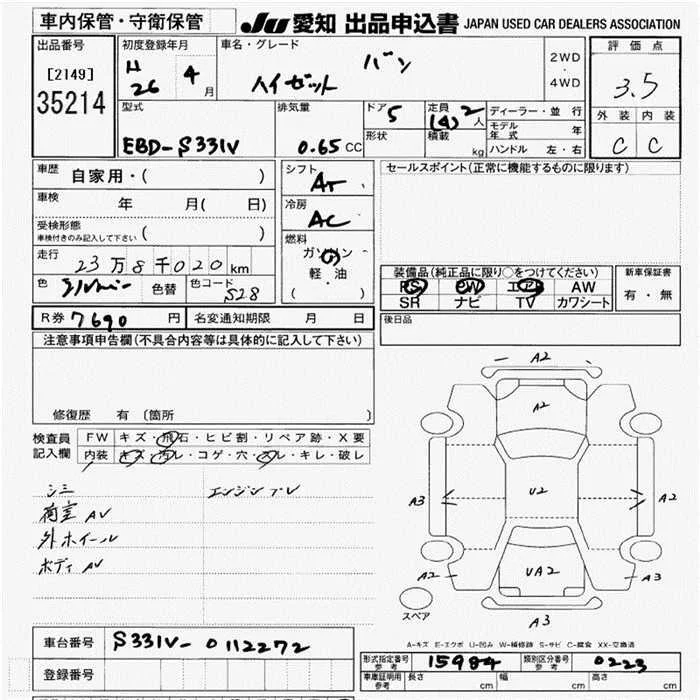 車内保管・守衛保管
JU 愛知 出品申込書 JAPAN USED CAR DEALERS ASSOCIATION
出品番号
[2149]
35214
初度登録年月
H
26 4 月
車名・グレード
ハイゼット バン
2WD
・
4WD
評価点
3.5
外装 内装
C C
型式
EBD-S331V
排気量
0.65 CC
ドア 5
形状
定員 (4) 2 人
積載 kg
ディーラー・並 行
モデル年式 年
ハンドル 左・右
車歴 自家用・( )
車検 年 月( 日)
受検形態 ( )
車検付きのみ記入して下さい
走行
23万8千020 km
色 シルバー 色替 色コード S28
シフト
AT
冷房
AC
燃料
ガソリン
軽・油
( )
セールスポイント(正常に機能するものに限ります)
装備品(純正品に限り○をつけてください)
PS PW エアB AW
SR ナビ TV カワシート
新車保証書
有・無
R券 7690 円 名変通知期限 月 日
後日品
注意事項申告欄(不具合内容等は具体的に記入して下さい)
修復歴 有 〔箇所 〕
検査員
記入欄
FW キズ・飛石・ヒビ割・リペア跡・X要
内装 キズ・汚レ・コゲ・穴・スレ・キレ・破レ
シミ エンジンブレ
荷室 AV
外ホイール
ボディ AV
A2
A2
A3 U2 A2
UA2
A2 A3
A3
スペア
A-キズ E-エクボ U-凹み W-補修跡 S-サビ C-腐食 XX-交換済
車台番号 S331V-0112272
登録番号
形式指定番号
参考
15984
類別区分番号
参考
0223
車庫証明用
参考
長さ cm 幅 cm 高さ cm